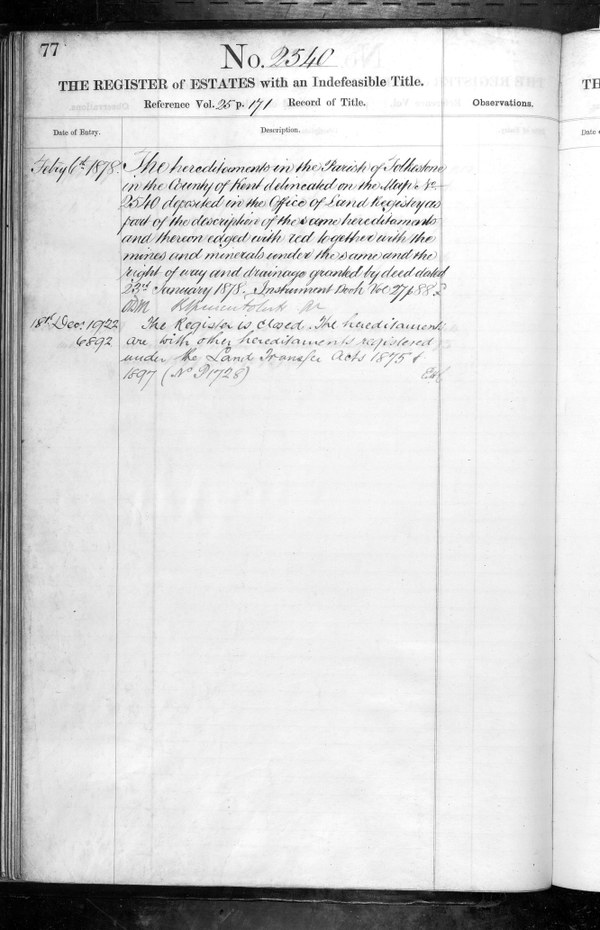 77
No. 2540
THE REGISTER of ESTATES with an Indefeasible Title.
Reference Vol. 25 p. 171 Record of Title.
Observations.
Date of Entry.
Description.
Feby 6th 1878.
The hereditaments in the Parish of Folkestone
in the County of Kent delineated on the Map No
2540 deposited in the Office of Land Registry as
part of the description of the same hereditaments
and thereon edged with red together with the
mines and minerals under the same and the
right of way and drainage granted by deed dated
23rd January 1878. Instrument Book Vol 27 p 88.
18th Dec: 1922
6892
The Register is closed. The hereditaments
are, with other hereditaments registered
under the Land Transfer Acts 1875 &
1897 (No P1728)
TH
Date